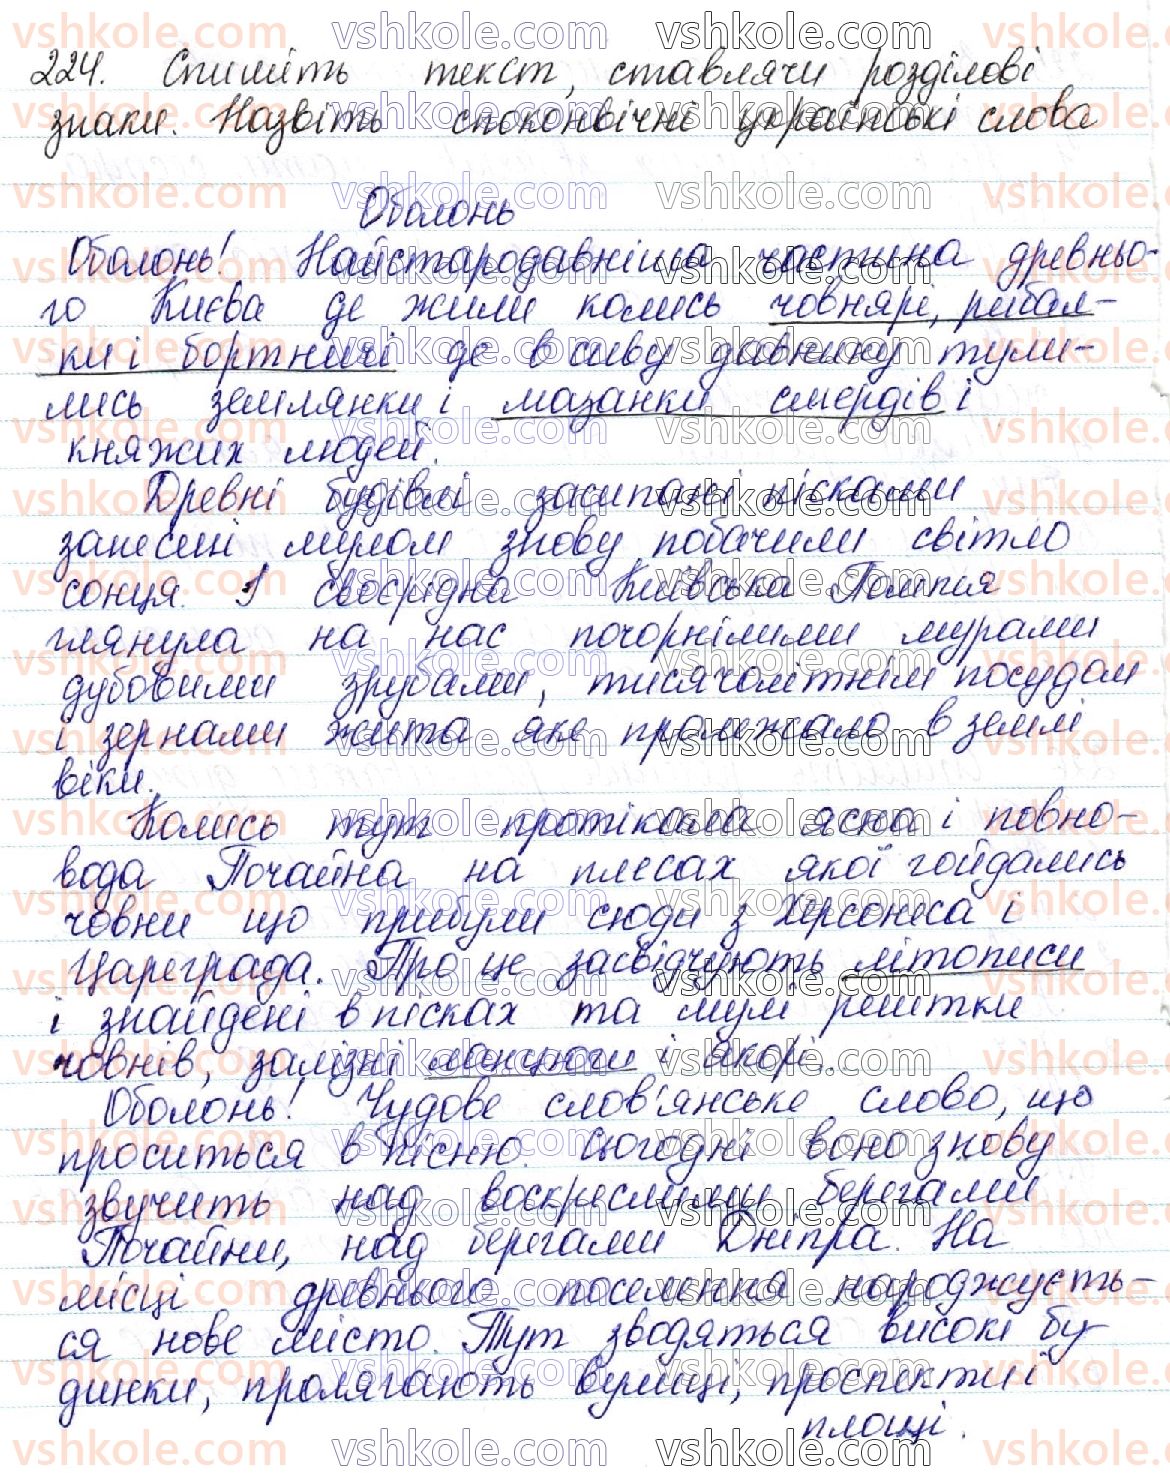 224. Спишіть текст, ставлячи розділові
знаки. Назвіть споконвічні українські слова
Оболонь
Оболонь! Найстародавніша частина древньо-
го Києва де жили колись човнярі, рибал-
ки і бортничі де в сиву давнину тули-
лись землянки і мазанки смердів і
княжих людей.
Древні будівлі засипані пісками
занесені мулом знову побачили світло
сонця. І своєрідна Київська Помпея
глянула на нас почорнілими мурами
дубовими зрубами, тисячолітнім посудом
і зернами жита яке пролежало в землі
віки.
Колись тут протікала ясна і повно-
вода Почайна на плесах якої гойдались
човни що прибули сюди з Херсонеса і
Цареграда. Про це засвідчують літописи
і знайдені в пісках та мулі рештки
човнів, залізні ланцюги і якорі.
Оболонь! Чудове слов'янське слово, що
проситься в пісню. Сьогодні воно знову
звучить над воскреслими берегами
Почайни, над берегами Дніпра. На
місці древнього поселення народжуєть-
ся нове місто. Тут зводяться високі бу-
динки, пролягають вулиці, проспекти і
площі.